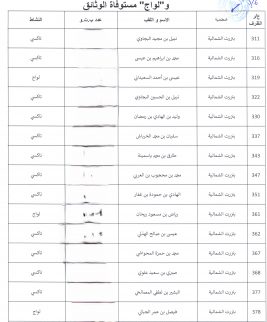 و"لواج" مستوفاة الوثائق
ع/ر الملف المعتمدية الاسم و اللقب عدد ب.ت.و النشاط
311 بنزرت الشمالية نبيل بن محمد البجاوي تاكسي
316 بنزرت الشمالية محمد بن ابراهيم بن عيسى تاكسي
319 بنزرت الشمالية عيسى بن أحمد السعيداني لواج
322 بنزرت الشمالية نبيل بن الحسين البجاوي تاكسي
330 بنزرت الشمالية وليد بن الهادي بن رمضان تاكسي
333 بنزرت الشمالية سفيان بن عمر تاكسي
343 بنزرت الشمالية طارق بن محمد تاكسي
347 بنزرت الشمالية محمد بن محجوب بن العربي تاكسي
351 بنزرت الشمالية الهادي بن حمودة بن عمار تاكسي
361 بنزرت الشمالية رياض بن مسعود ريحان لواج
362 بنزرت الشمالية عيسى بن صالح الهذلي تاكسي
365 بنزرت الشمالية محمد بن حمزة تاكسي
368 بنزرت الشمالية صبري بن سعيد علوي تاكسي
377 بنزرت الشمالية البشير بن لطفي تاكسي
378 بنزرت الشمالية فيصل بن عمر الجبالي لواج